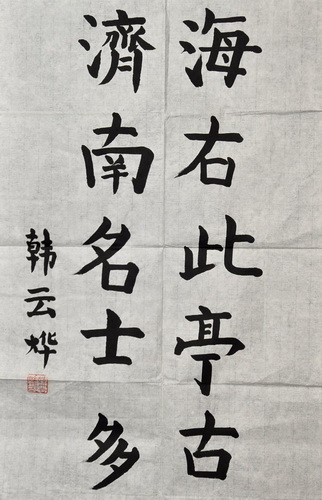 海右此亭古
濟南名士多
韩云烨